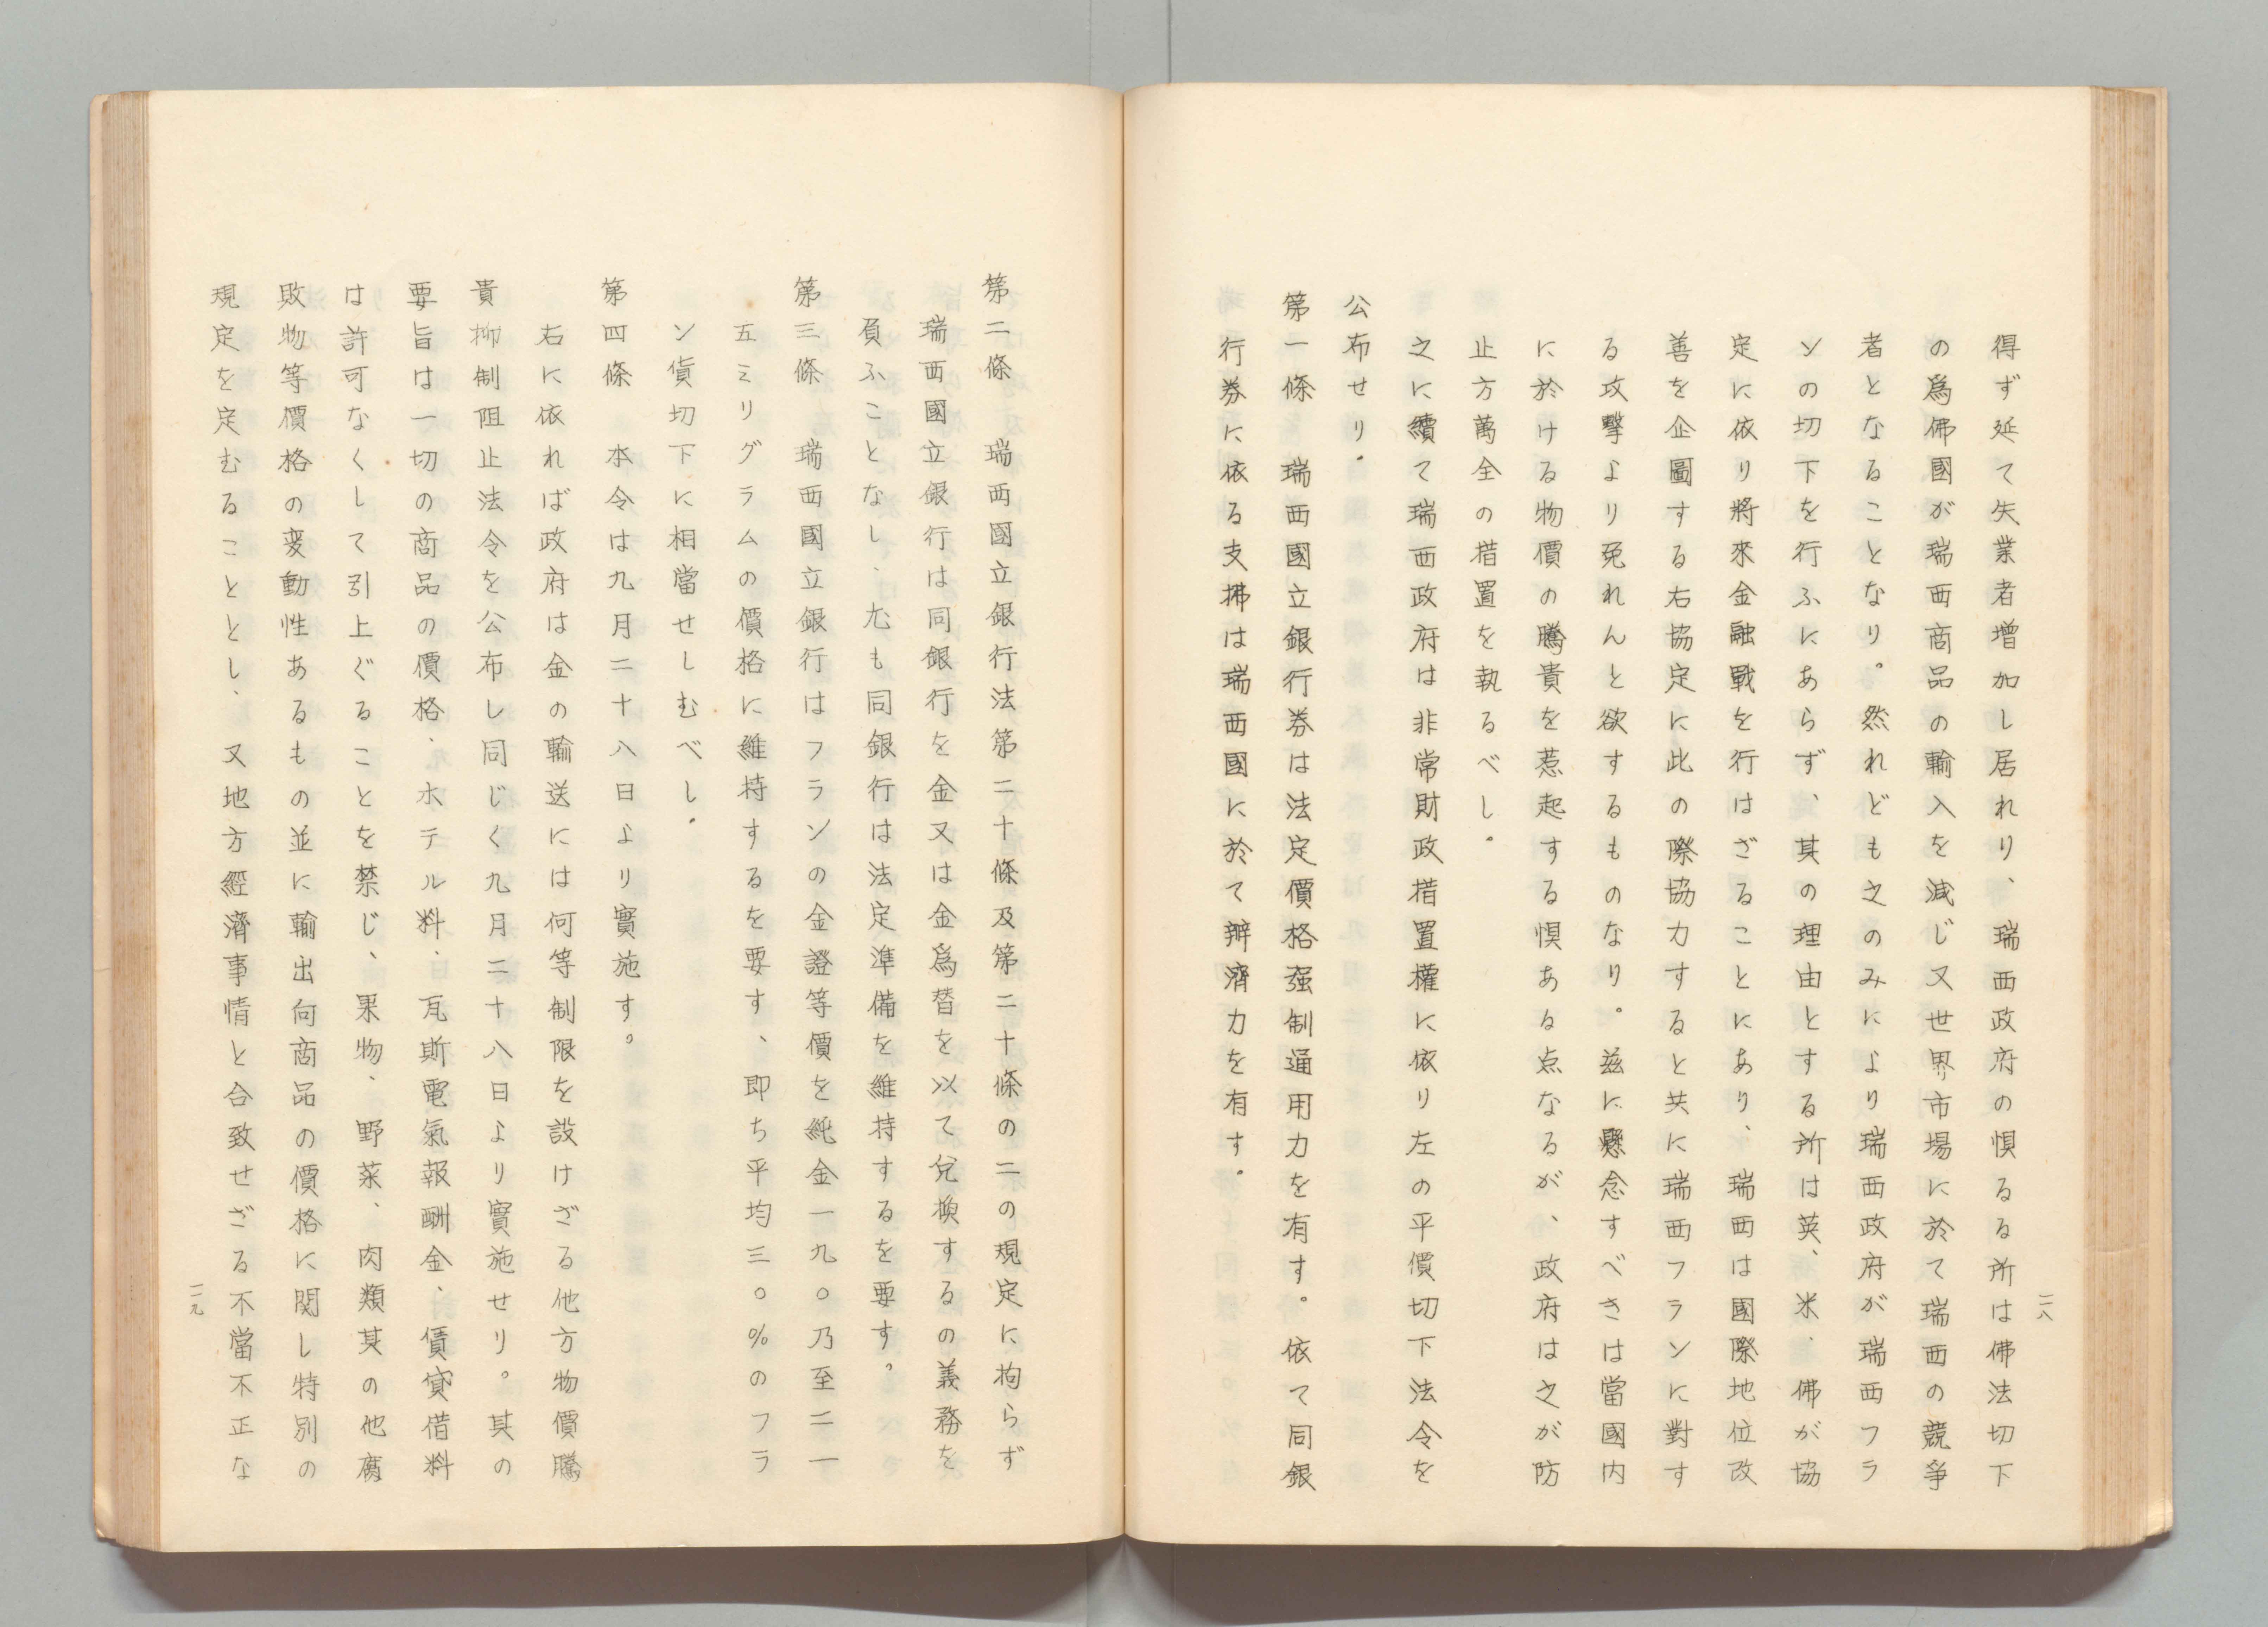 得ず延て失業者増加し居れり、瑞西政府の惧る所は佛法切下
の爲佛國が瑞西商品の輸入を減じ又世界市場に於て瑞西の競爭
者となることなり。然れども之のみにより瑞西政府が瑞西フラ
ンの切下を行ふにあらず、其の理由とする所は英、米、佛が協
定に依り將來金融戰を行はざることにあり、瑞西は國際地位改
善を企圖する右協定に此の際協力すると共に瑞西フランに對す
る攻擊より免れんと欲するものなり。茲に懸念すべきは當國内
に於ける物價の騰貴を惹起する惧ある点なるが、政府は之が防
止方萬全の措置を執るべし。
之に續て瑞西政府は非常財政措置權に依り左の平價切下法令を
公布せり。
第一條　瑞西國立銀行券は法定價格强制通用力を有す。依て同銀
行券に依る支拂は瑞西國に於て辨濟力を有す。
二八
第二條　瑞西國立銀行法第二十條及第二十條の二の規定に拘らず
瑞西國立銀行は同銀行を金又は金爲替を以て兌換するの義務を
負ふことなし、尤も同銀行は法定準備を維持するを要す。
第三條　瑞西國立銀行はフランの金證等價を純金一九〇乃至二一
五ミリグラムの價格に維持するを要す、即ち平均三〇％のフラ
ン貨切下に相當せしむべし。
第四條　本令は九月二十八日より實施す。
右に依れば政府は金の輸送には何等制限を設けざる他方物價騰
貴抑制阻止法令を公布し同じく九月二十八日より實施せり。其の
要旨は一切の商品の價格、ホテル料、瓦斯電氣報酬金、債貸借料
は許可なくして引上ぐることを禁じ、果物、野菜、肉類其の他腐
敗物等價格の変動性あるもの並に輸出向商品の價格に関し特別の
規定を定むることとし、又地方經濟事情と合致せざる不當不正な
二九